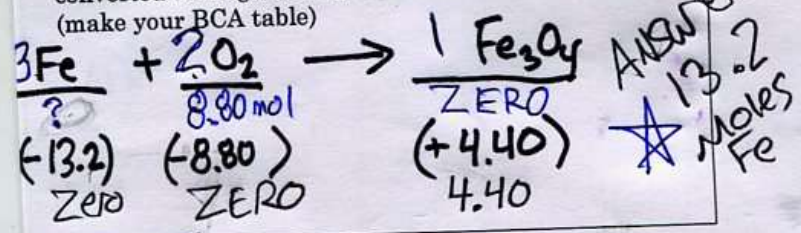 (make your BCA table)
3Fe + 2O₂ → 1 Fe₃O₄
? 8.80 mol ZERO
(-13.2) (-8.80) (+4.40)
Zero ZERO 4.40
ANSW
13.2
Moles
Fe